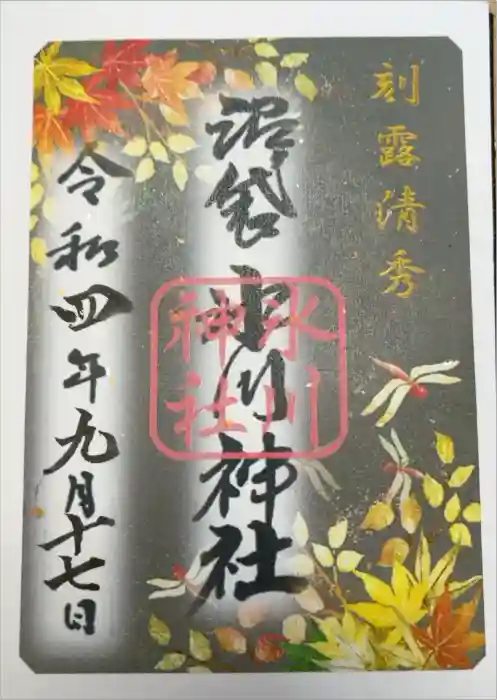 刻露清秀
沼袋氷川神社
氷川
神社
令和四年九月十七日